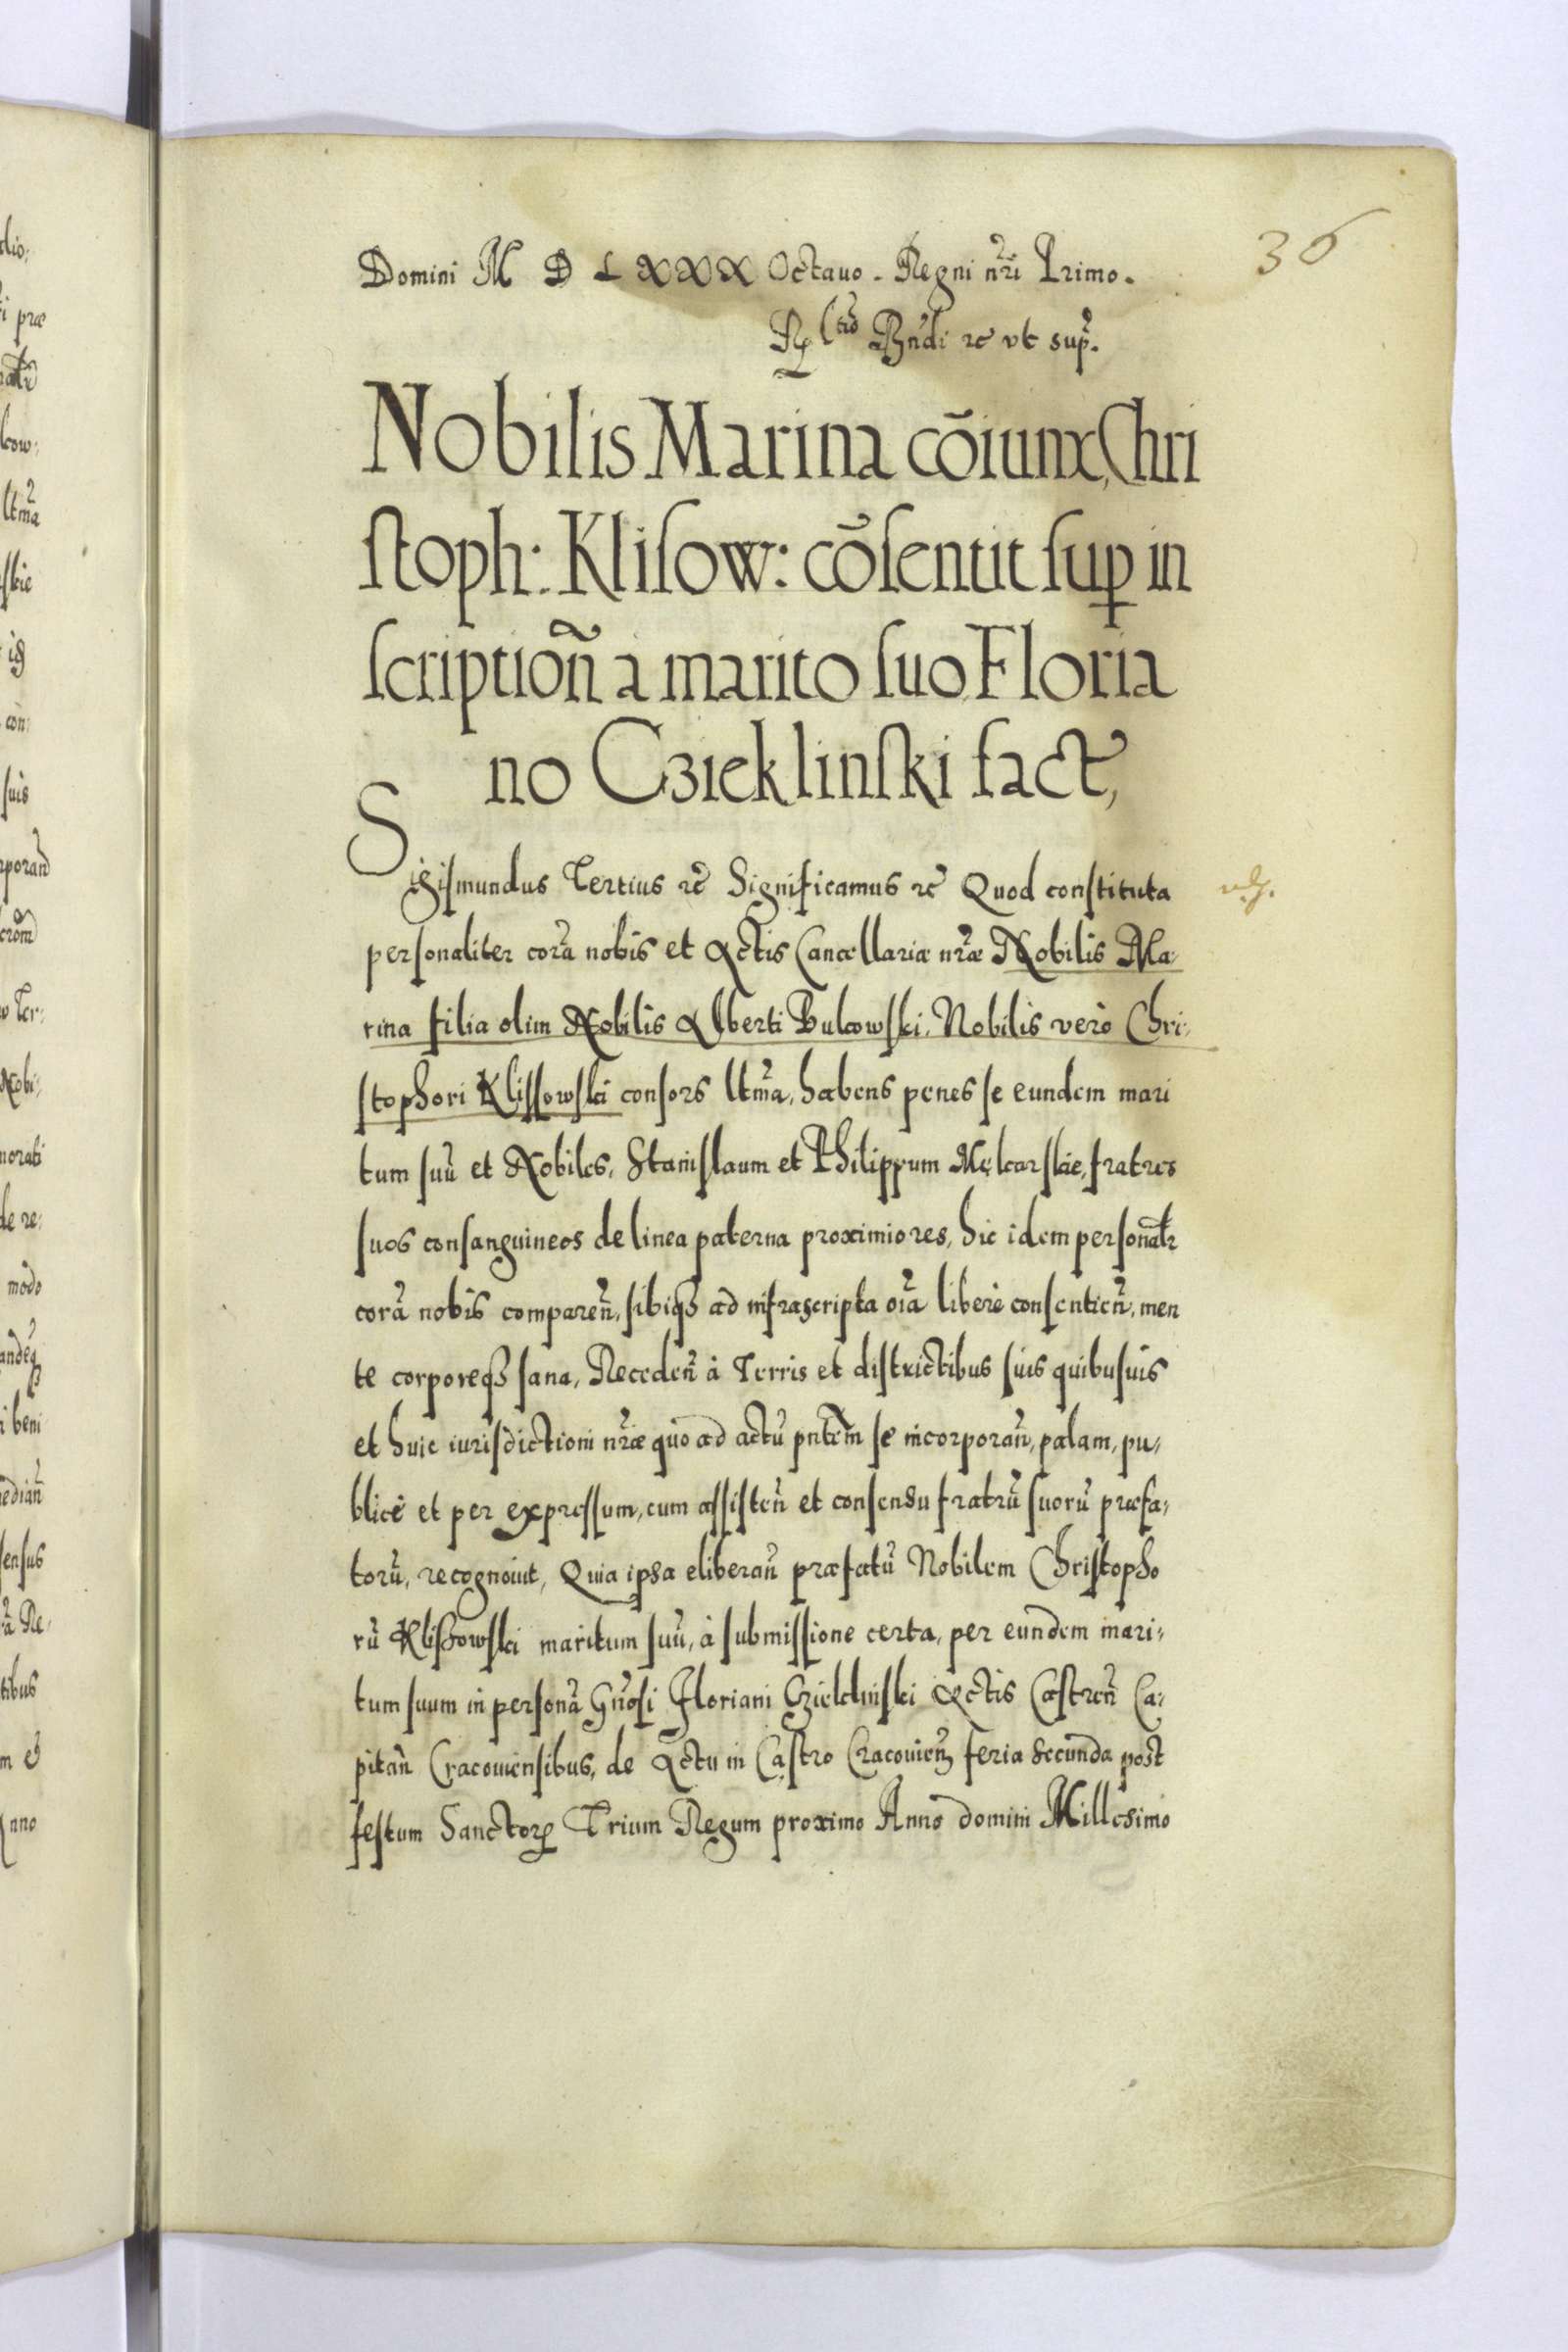 36
Domini M D L XXX Octauo. Regni nr̃i Primo.
Bñdi ꝛc vt sup̃.
Nobilis Marina cōiunx, Chri
stoph: Klisow: cōsentit sup̱ in
scription̄ a marito suo Floria
no Czieklinski fact,
Sigismundus Tertius ꝛc̃ Significamus ꝛc̃ Quod constituta
personaliter corã nobis et Actis Cancellariæ nr̃æ Nobilis Ma-
rina filia olim Nobilis Alberti Bukowski. Nobilis vero Chri-
stophori Klissowski consors ltm̃a, habens penes se eundem mari
tum suũ et Nobiles, Stanislaum et Philippum Mękarskie, fratres
suos consanguineos de linea paterna proximiores, hic idem personalr̃
corã nobis compareñ, sibiqȝ ad infrascripta oĩa liberè consentieñ, men
te corporeqȝ sana, Recedeñ à Terris et districtibus suis quibusuis
et huic iurisdictioni nr̃æ quo ad actũ pñtem se incorporañ, palam, pu-
blicè et per expressum, cum assisteñ et consensu fratrũ suorũ præfa-
torũ, recognouit, Quia ipsa eliberañ præfatũ Nobilem Christopho
rũ Klissowski maritum suũ, à submissione certa, per eundem mari-
tum suum in personã Gñosi Floriani Czieklinski Actis Castreñ Ca-
pitañ Cracouiensibus, de Actu in Castro Cracouieñ feria secunda post
festum Sanctorꝝ Trium Regum proximo Anno domini Millesimo